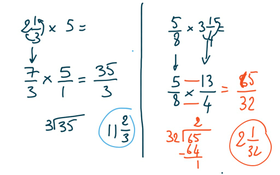 2 1/3 × 5 =
7/3 × 5/1 = 35/3
3⟌35
11 2/3
5/8 × 3 1/4 =
5/8 × 13/4 = 65/32
2
32⟌65
−64
1
2 1/32